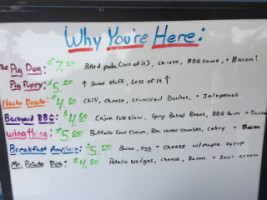 Why You're Here:
The Pig Dog: $7.00 Pulled pork (lots of it), cheese, BBQ sauce, + Bacon!
Pig Puppy: $5.00 ↑ Same stuff, Less of it ↑
Nacho Doggie: $4.50 Chili, cheese, crunched Doritos, + Jalapenos
Backyard BBQ: $4.50 Cajun Coleslaw, Spicy Baked Beans, BBQ Sauce + Bacon
Wing Thing: $5.00 Buffalo Sour Cream, Blue cheese crumbles, Celery + Bacon
Breakfast $5.00 Bacon, egg + Cheese w/ Maple Ketchup
Mr. Potato Dog: $4.50 Potato wedges, cheese, Bacon + Sour Cream